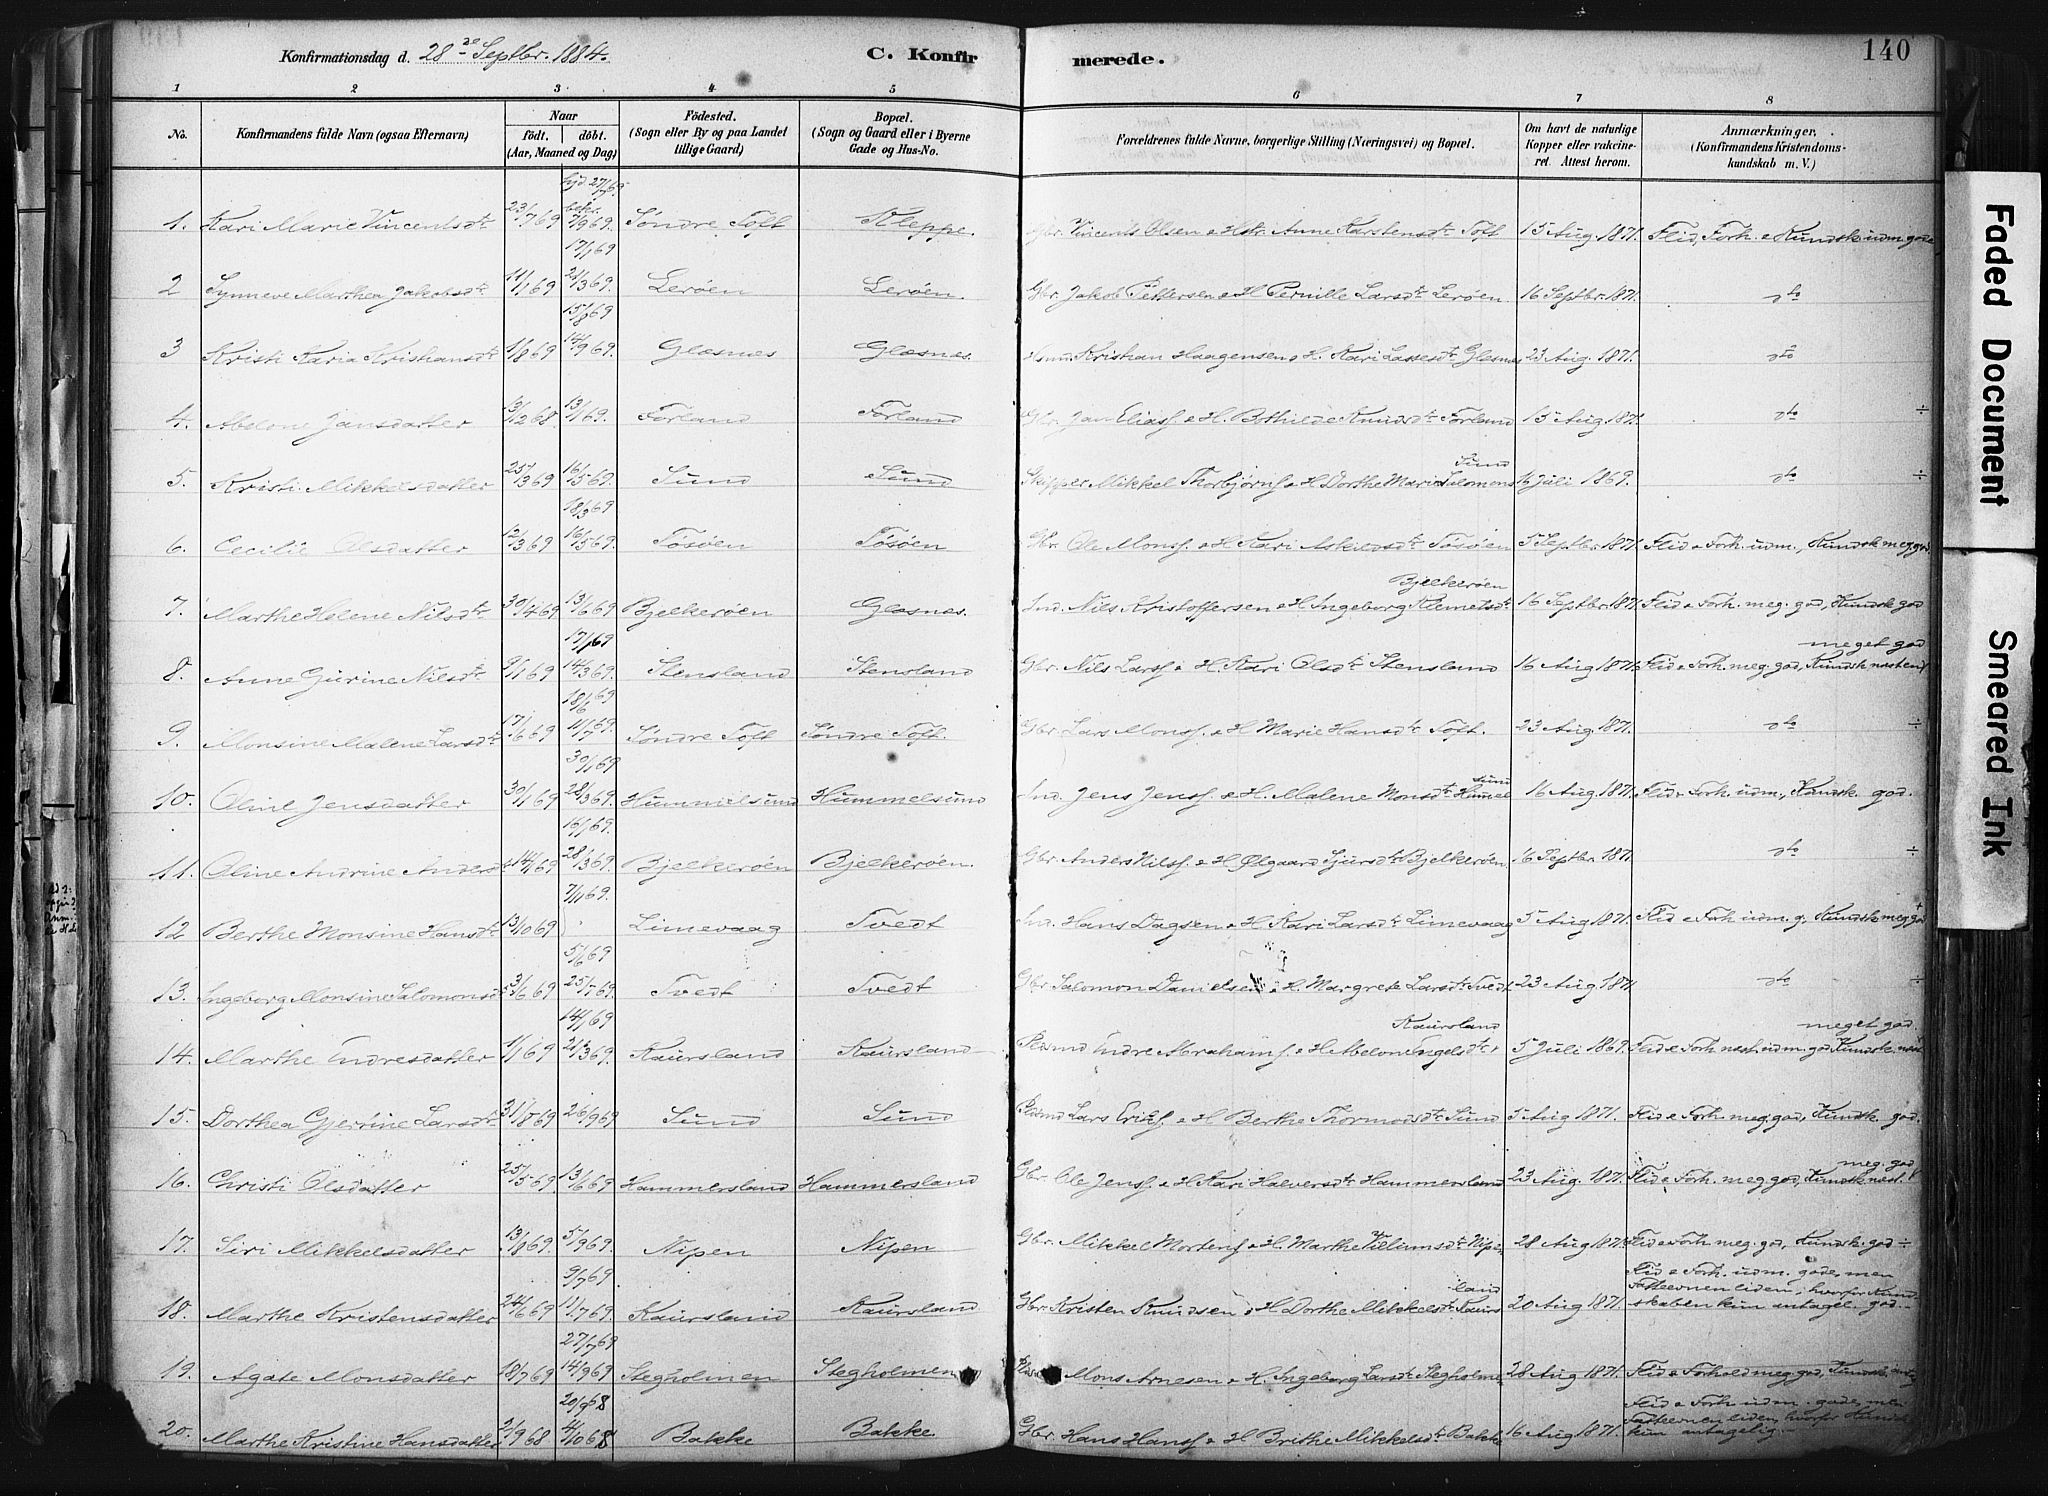 Konfirmationsdag d. 28de Septbr. 1884.
C. Konfirmerede.
140
1 2 3 4 5 6 7 8
No. | Konfirmandens fulde Navn (ogsaa Efternavn) | Naar født. døbt. (Aar, Maaned og Dag) | Fødested. (Sogn eller By og paa Landet tillige Gaard) | Bopæl. (Sogn og Gaard eller i Byerne Gade og Hus-No. | Forældrenes fulde Navne, borgerlige Stilling (Næringsvei) og Bopæl. | Om havt de naturlige Kopper eller vaccineret. Attest herom. | Anmærkninger. (Konfirmandens Kristendomskundskab m. V.)
1. Kari Marie Vincentsdtr 23/7 69 hjd 27/7 69 beks. 7/9 69. Søndre Toft Kleppe. Gbr. Vincents Olsen & Hstr. Anne Karstensdtr Toft 15 Aug. 1871. Flid, Forh. & Kundsk. udm. gode
2 Synneve Marthea Jakobsdtr 11/1 69 17/1 69 21/3 69. Lerøen Lerøen. Gbr. Jakob Pettersen & H. Pernille Larsdtr Lerøen 16 Septbr. 1871. dto
3 Kristi Karia Kristiansdtr 1/8 69 15/8 69 14/9 69. Glesnes Glesnes. Kristian Haagensen & H. Kari Lassesdtr Glesnes 23 Aug. 1871. dto
4. Abelone Jansdatter 13/12 68 13/1 69. Forland Forland Gbr. Jan Eliass. & H. Bothilde Knudsdtr Forland 15 Aug. 1871. dto ÷
5. Kristi Mikkelsdatter 25/3 69 16/5 69. Sund Sund Skipper Mikkel Thorbjørns. & H. Dorthe Marie Salomons Sund 16 Juli 1869. dto ÷
6. Cecilie Olsdatter 12/3 69 18/3 69 16/5 69. Tøsøen Tøsøen Gbr. Ole Monss. & H. Kari Askildsdtr Tøsøen 5 Septbr. 1871. Flid & Forh. udm., Kundsk. meg. god.
7. Marthe Helene Nilsdtr 30/4 69 13/6 69 Bjelkerøen Glesnes. Ind. Nils Kristoffersen & H. Ingeborg Klemetsdtr Bjelkerøen 16 Septbr. 1871 Flid & Forh. meg. god, Kundsk. god
8. Anne Gurine Nilsdtr 9/1 69 17/1 69 14/3 69. Stensland Stensland Gbr. Nils Larss. & H. Kari Olsdtr Stensland 16 Aug. 1871. Flid & Forh. meg. god, Kundsk. næsten meget god
9. Monsine Malene Larsdtr 17/6 69 18/6 69 11/7 69. Søndre Toft Søndre Toft. Gbr. Lars Monss. & H. Marie Hansdtr Toft. 23 Aug. 1871. dto ÷
10. Oline Jensdatter 30/1 69 30/1 69 28/3 69. Hummelsund Hummelsund Ind. Jens Jenss. & H. Malene Monsdtr Humelsund 16 Aug. 1871. Flid & Forh. udm., Kundsk. god.
11. Oline Andrine Anders 14/1 69 16/1 69. 28/3 69. Bjelkerøen Bjelkerøen. Gbr. Anders Nilss. & H. Ølgaard Sjursdtr Bjelkerøen 16 Septbr. 1871 dto ÷
12 Berthe Monsine Hansdtr 13/10 69 7/11 69. Limevaag Tvedt Ind. Hans Dagsen & H. Kari Larsdtr Limevaag 5 Aug. 1871. Flid & Forh. udm. g., Kundsk. meg. god
13. Ingeborg Monsine Salomonsd 3/6 69 5/6 69 25/7 69. Tvedt Tvedt Gbr. Salomon Danielsen & H. Margrete Larsdtr Tvedt 23 Aug. 1871 dto ÷
14. Marthe Endresdatter 1/1 69 14/1 69 21/3 69. Kaursland Kaursland Endre Abrahams. & H. Abelone Engelsdtr Kaursland 5 Juli 1869. Flid & Forh. næst. udm. god Kundsk. næst meget god.
15. Dorthea Gjertine Larsdtr. 31/8 69 26/9 69 Sund Sund Lars Eriks. & H. Berthe Thormodsdtr Sund 5 Aug. 1871. Flid & Forh. meg. god, Kundsk. god.
16. Christi Olsdatter 25/5 69. 13/6 69 Hammersland Hammersland Gbr. Ole Jenss. & H. Kari Halversdtr Hammersland 23 Aug. 1871. Flid & Forh. meg. god, Kundsk. næst. meg. god
17. Siri Mikkelsdatter 13/8 69. 5/9 69. Nipen Nipen Gbr. Mikkel Mortens. & H. Marthe Villiumsdtr Nipen 28 Aug. 1871. Flid & Forh. meg. god, Kundsk. god ÷
18. Marthe Kristensdatter 24/6 69 9/7 69 11/7 69. Kaursland Kaursland Gbr. Kristen Knudsen & H. Dorthe Mikkelsdtr Kaursland 20 Aug. 1871. Flid & Forh. udm. gode, men Fatteevnen liden, hvorfor Kundskaben kun antagel. god.
19. Agate Monsdatter 18/7 69 27/7 69 14/9 69 Stegholmen Stegholmen Mons Arnesen & H. Ingeborg Larsdtr Stegholmen 28 Aug. 1871. Flid & Forhold meg. god, Kundsk. antag
20. Marthe Kristine Hansdatter 2/9 68 20/9 68 4/10 68 Bakke Bakke. Gbr. Hans Hanss. & H. Brithe Mikkelsdtr Bakke 16 Aug. 1871. Flid & Forh. udm. gode, men Fatteevnen liden, hvorfor Kundsk. kun antagelig.
Faded Document
Smeared Ink